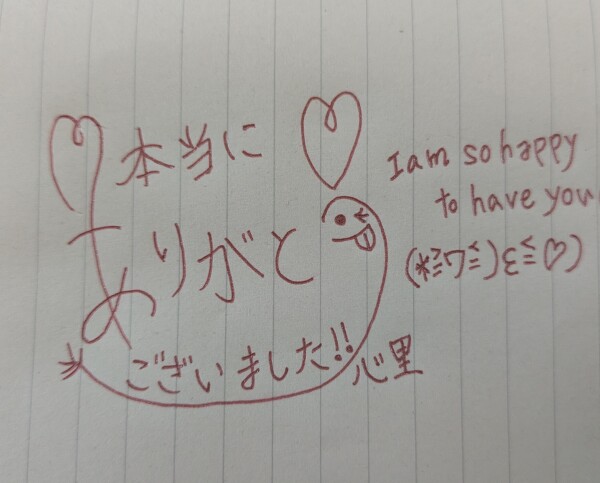 本当に
ありがとう
ございました!!
心里
I am so happy
to have you
(*≧з≦)ε≧♡)